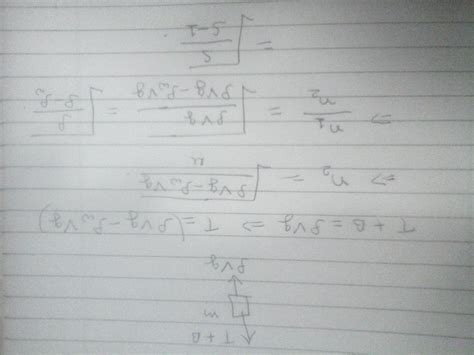 T + B
m
ρVg
T + B = ρVg ⇒ T = (ρVg - ρ_wVg)
⇒ n_2 = √((ρVg - ρ_wVg)/μ)
⇒ n_1/n_2 = √(ρVg/(ρVg - ρ_wVg)) = √(ρ/(ρ - ρ_w))
= √(S/(S-1)) .